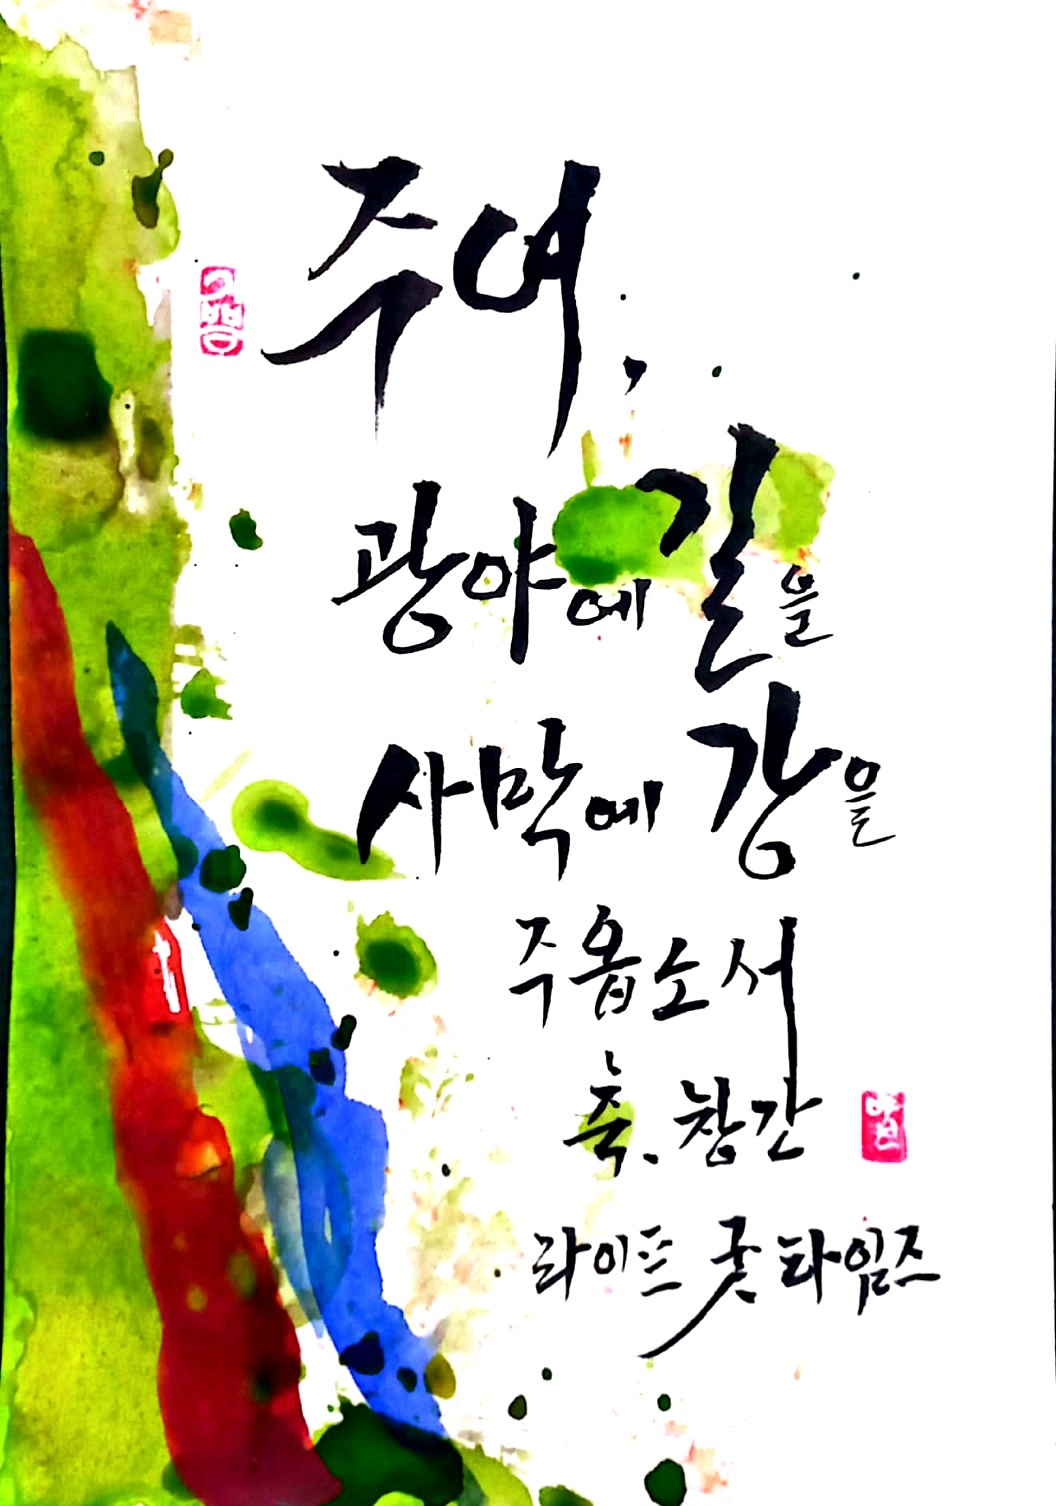 주여,
광야에 길을
사막에 강을
주옵소서
축. 창간
라이프 굿 타임즈